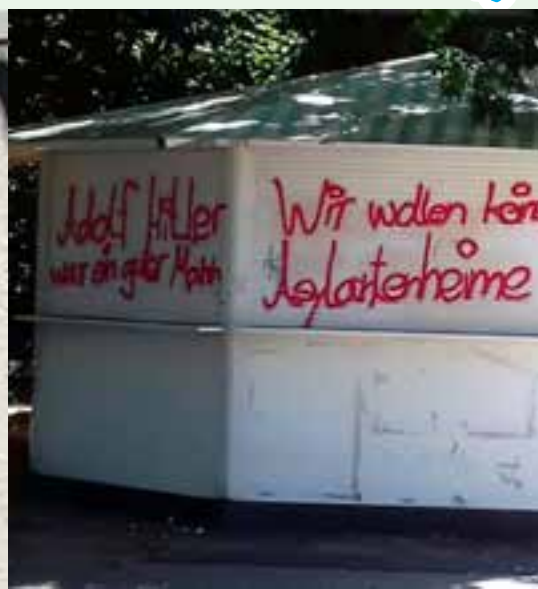 Adolf Hitler
war ein guter Mann
Wir wollen kein
Asylantenheime